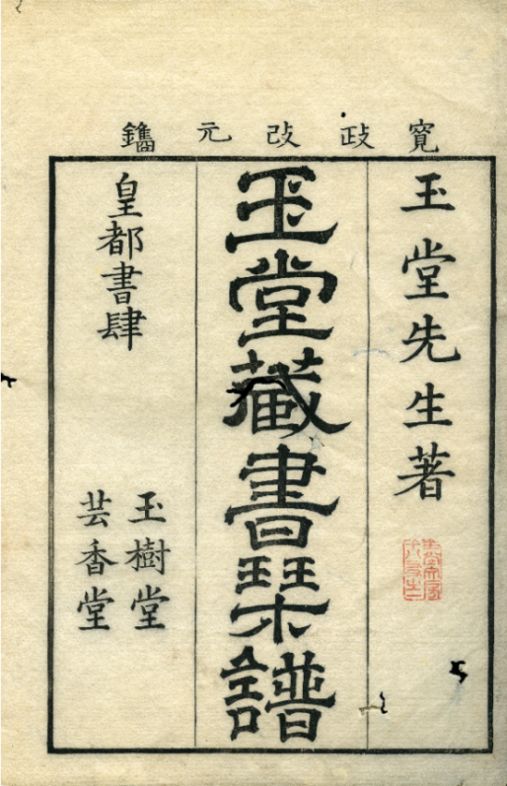 寛政改元鐫
玉堂先生著
玉堂藏書琹譜
皇都書肆
玉樹堂
芸香堂